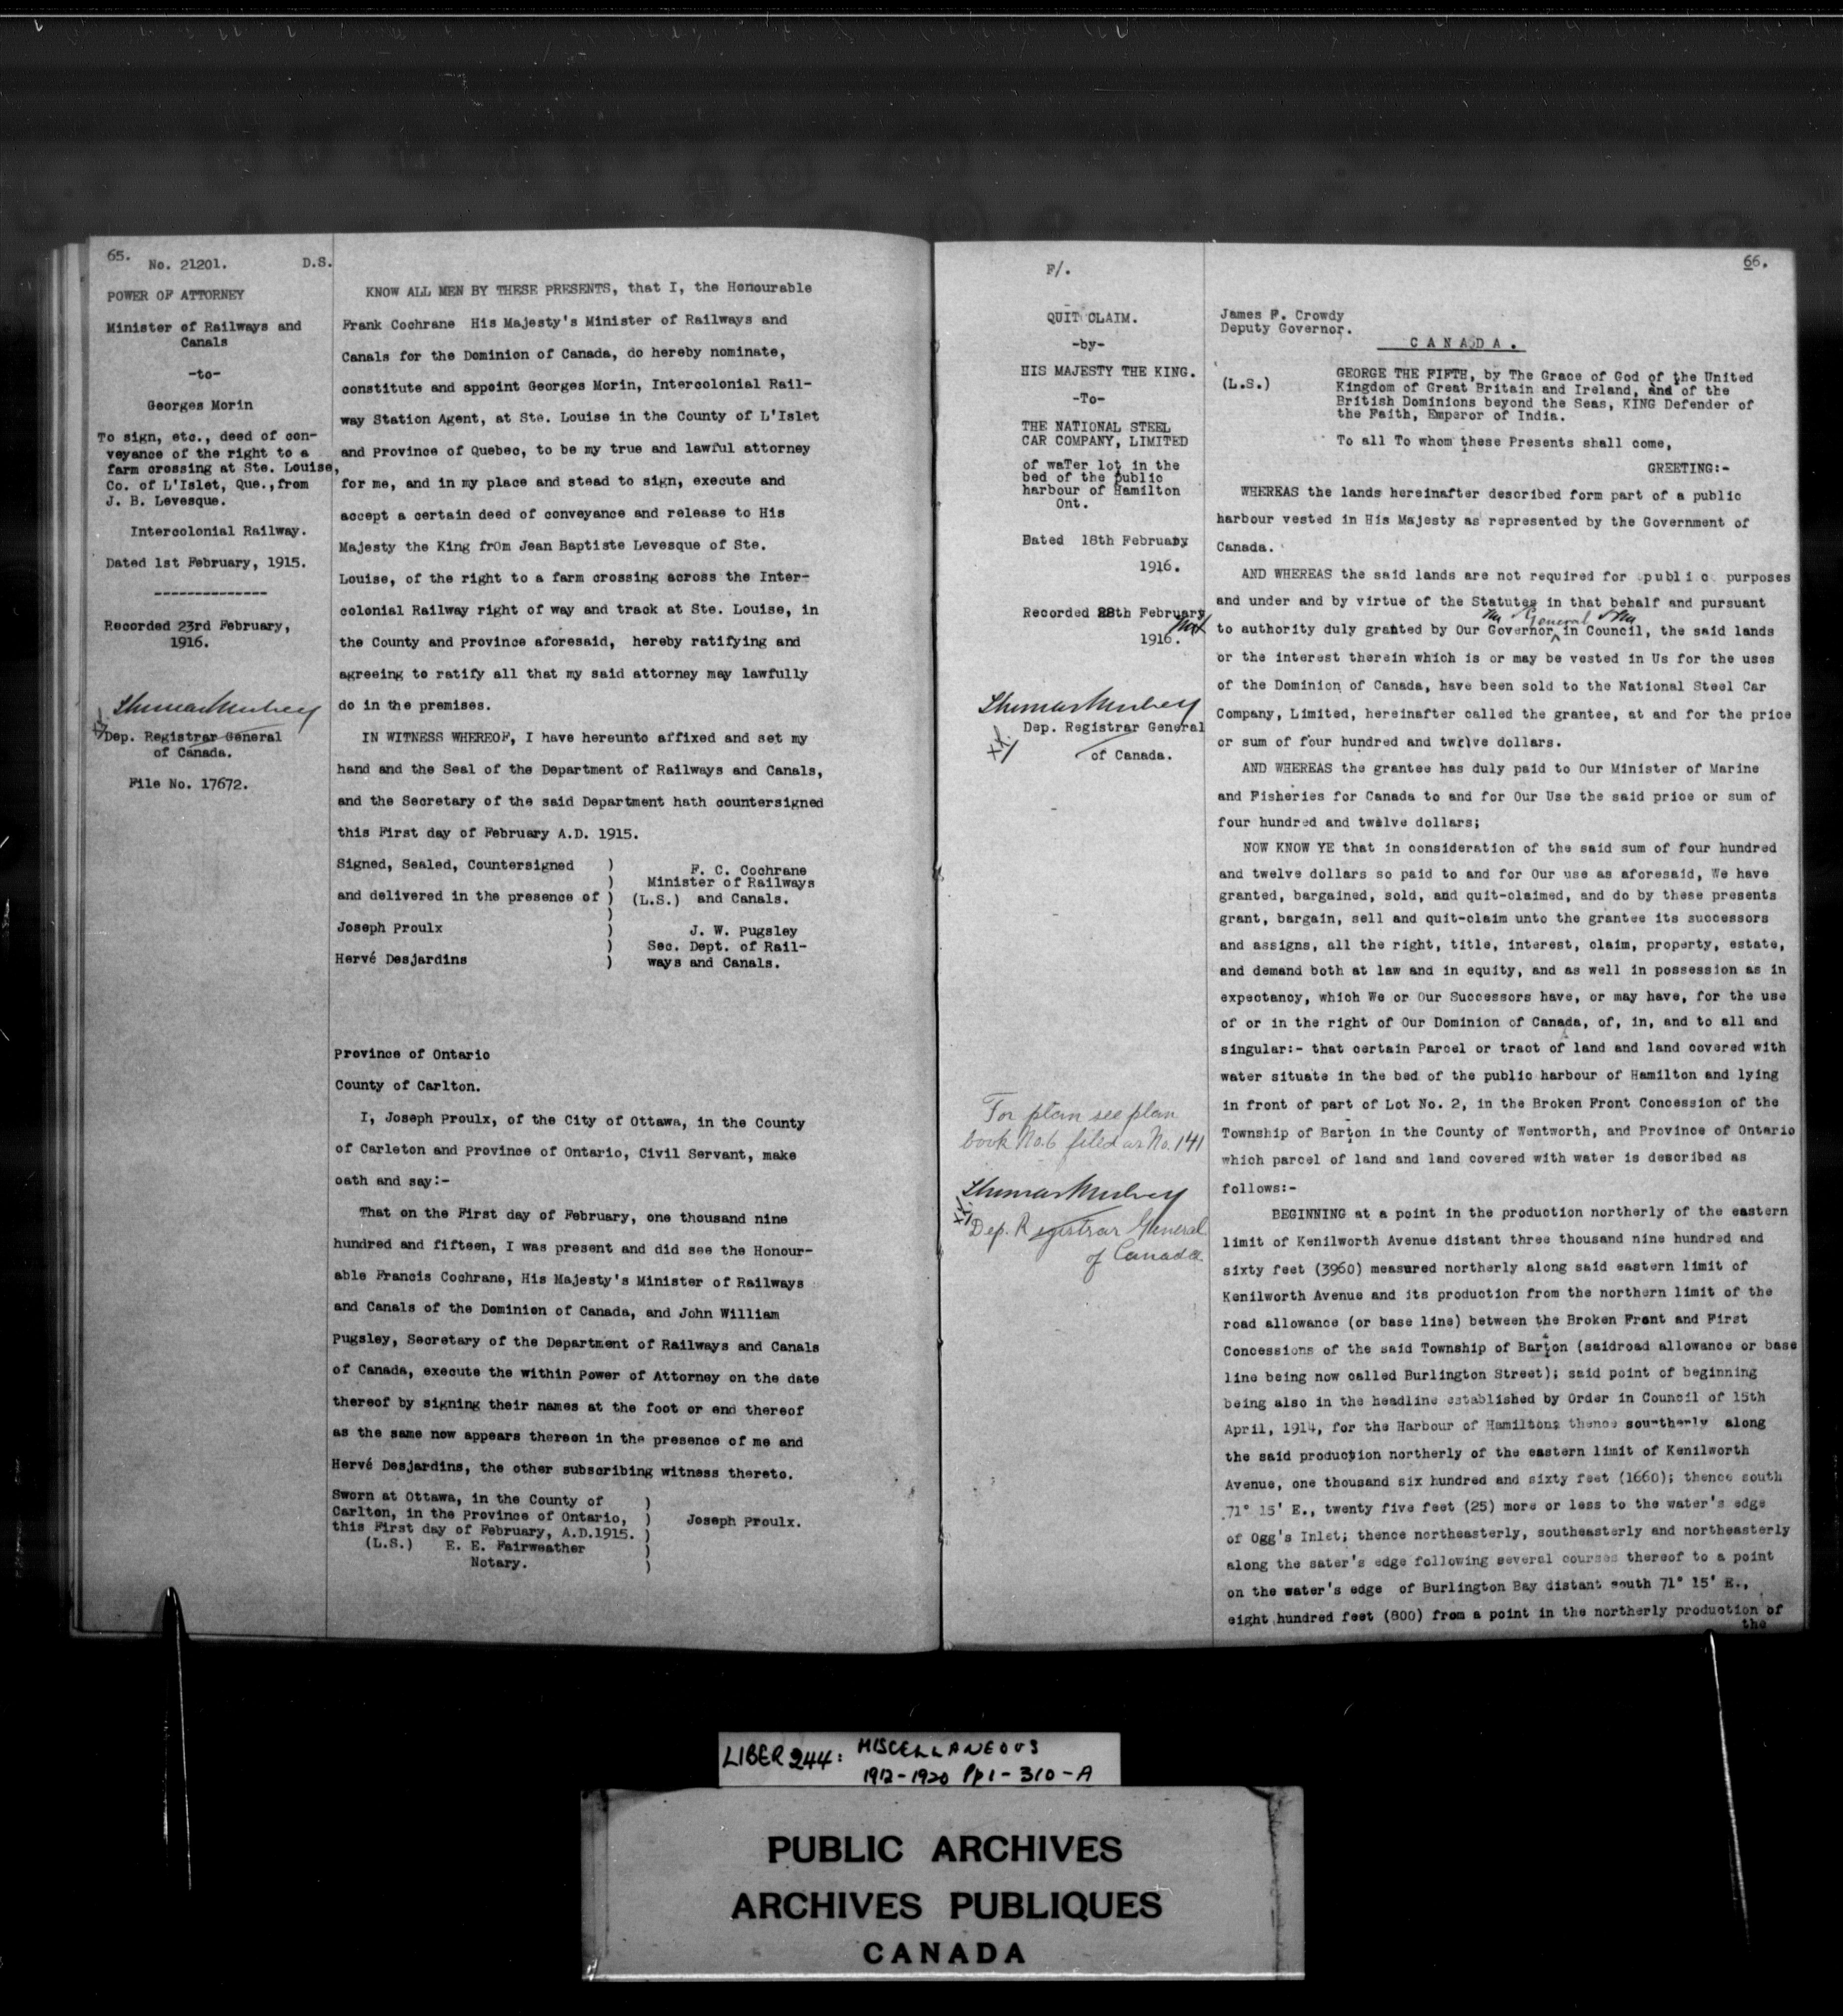 65.
No. 21201.
D.S.
POWER OF ATTORNEY
Minister of Railways and
Canals
-to-
Georges Morin
To sign, etc., deed of con-
veyance of the right to a
farm crossing at Ste. Louise,
Co. of L'Islet, Que.,from
J. B. Levesque.
Intercolonial Railway.
Dated 1st February, 1915.
--------------
Recorded 23rd February,
1916.
Thomas Mulvey
Dep. Registrar General
of Canada.
File No. 17672.
KNOW ALL MEN BY THESE PRESENTS, that I, the Honourable
Frank Cochrane His Majesty's Minister of Railways and
Canals for the Dominion of Canada, do hereby nominate,
constitute and appoint Georges Morin, Intercolonial Rail-
way Station Agent, at Ste. Louise in the County of L'Islet
and Province of Quebec, to be my true and lawful attorney
for me, and in my place and stead to sign, execute and
accept a certain deed of conveyance and release to His
Majesty the King frOm Jean Baptiste Levesque of Ste.
Louise, of the right to a farm crossing across the Inter-
colonial Railway right of way and track at Ste. Louise, in
the County and Province aforesaid, hereby ratifying and
agreeing to ratify all that my said attorney may lawfully
do in the premises.
IN WITNESS WHEREOF, I have hereunto affixed and set my
hand and the Seal of the Department of Railways and Canals,
and the Secretary of the said Department hath countersigned
this First day of February A.D. 1915.
Signed, Sealed, Countersigned )
) F. C. Cochrane
Minister of Railways
and delivered in the presence of ) (L.S.) and Canals.
)
Joseph Proulx ) J. W. Pugsley
) Sec. Dept. of Rail-
Hervé Desjardins ) ways and Canals.
Province of Ontario
County of Carlton.
I, Joseph Proulx, of the City of Ottawa, in the County
of Carleton and Province of Ontario, Civil Servant, make
oath and say:-
That on the First day of February, one thousand nine
hundred and fifteen, I was present and did see the Honour-
able Francis Cochrane, His Majesty's Minister of Railways
and Canals of the Dominion of Canada, and John William
Pugsley, Secretary of the Department of Railways and Canals
of Canada, execute the within Power of Attorney on the date
thereof by signing their names at the foot or end thereof
as the same now appears thereon in the presence of me and
Hervé Desjardins, the other subscribing witness thereto.
Sworn at Ottawa, in the County of )
Carlton, in the Province of Ontario, ) Joseph Proulx.
this First day of February, A.D.1915. )
(L.S.) E. E. Fairweather )
Notary. )
F/.
QUIT CLAIM.
-by-
HIS MAJESTY THE KING.
-To-
THE NATIONAL STEEL
CAR COMPANY, LIMITED
of waTer lot in the
bed of the public
harbour of Hamilton
Ont.
Dated 18th February
1916.
Recorded 28th February
1916.
Thomas Mulvey
Dep. Registrar General
of Canada.
For plan see plan
book No.6 filed as No. 141
Thomas Mulvey
Dep. Registrar General
of Canada
66.
James F. Crowdy
Deputy Governor.
CANADA.
(L.S.)
GEORGE THE FIFTH, by The Grace of God of the United
Kingdom of Great Britain and Ireland, and of the
British Dominions beyond the Seas, KING Defender of
the Faith, Emperor of India.
To all To whom these Presents shall come,
GREETING:-
WHEREAS the lands hereinafter described form part of a public
harbour vested in His Majesty as represented by the Government of
Canada.
AND WHEREAS the said lands are not required for public purposes
and under and by virtue of the Statutes in that behalf and pursuant
General
to authority duly granted by Our Governor in Council, the said lands
or the interest therein which is or may be vested in Us for the uses
of the Dominion of Canada, have been sold to the National Steel Car
Company, Limited, hereinafter called the grantee, at and for the price
or sum of four hundred and twelve dollars.
AND WHEREAS the grantee has duly paid to Our Minister of Marine
and Fisheries for Canada to and for Our Use the said price or sum of
four hundred and twelve dollars;
NOW KNOW YE that in consideration of the said sum of four hundred
and twelve dollars so paid to and for Our use as aforesaid, We have
granted, bargained, sold, and quit-claimed, and do by these presents
grant, bargain, sell and quit-claim unto the grantee its successors
and assigns, all the right, title, interest, claim, property, estate,
and demand both at law and in equity, and as well in possession as in
expectancy, which We or Our Successors have, or may have, for the use
of or in the right of Our Dominion of Canada, of, in, and to all and
singular:- that certain Parcel or tract of land and land covered with
water situate in the bed of the public harbour of Hamilton and lying
in front of part of Lot No. 2, in the Broken Front Concession of the
Township of Barton in the County of Wentworth, and Province of Ontario
which parcel of land and land covered with water is described as
follows:-
BEGINNING at a point in the production northerly of the eastern
limit of Kenilworth Avenue distant three thousand nine hundred and
sixty feet (3960) measured northerly along said eastern limit of
Kenilworth Avenue and its production from the northern limit of the
road allowance (or base line) between the Broken Front and First
Concessions of the said Township of Barton (saidroad allowance or base
line being now called Burlington Street); said point of beginning
being also in the headline established by Order in Council of 15th
April, 1914, for the Harbour of Hamilton; thence southerly along
the said production northerly of the eastern limit of Kenilworth
Avenue, one thousand six hundred and sixty feet (1660); thence south
71° 15' E., twenty five feet (25) more or less to the water's edge
of Ogg's Inlet; thence northeasterly, southeasterly and northeasterly
along the sater's edge following several courses thereof to a point
on the water's edge of Burlington Bay distant south 71° 15' E.,
eight hundred feet (800) from a point in the northerly production of
the
LIBER 244: MISCELLANEOUS
1912-1920 Pp1-310-A
PUBLIC ARCHIVES
ARCHIVES PUBLIQUES
CANADA